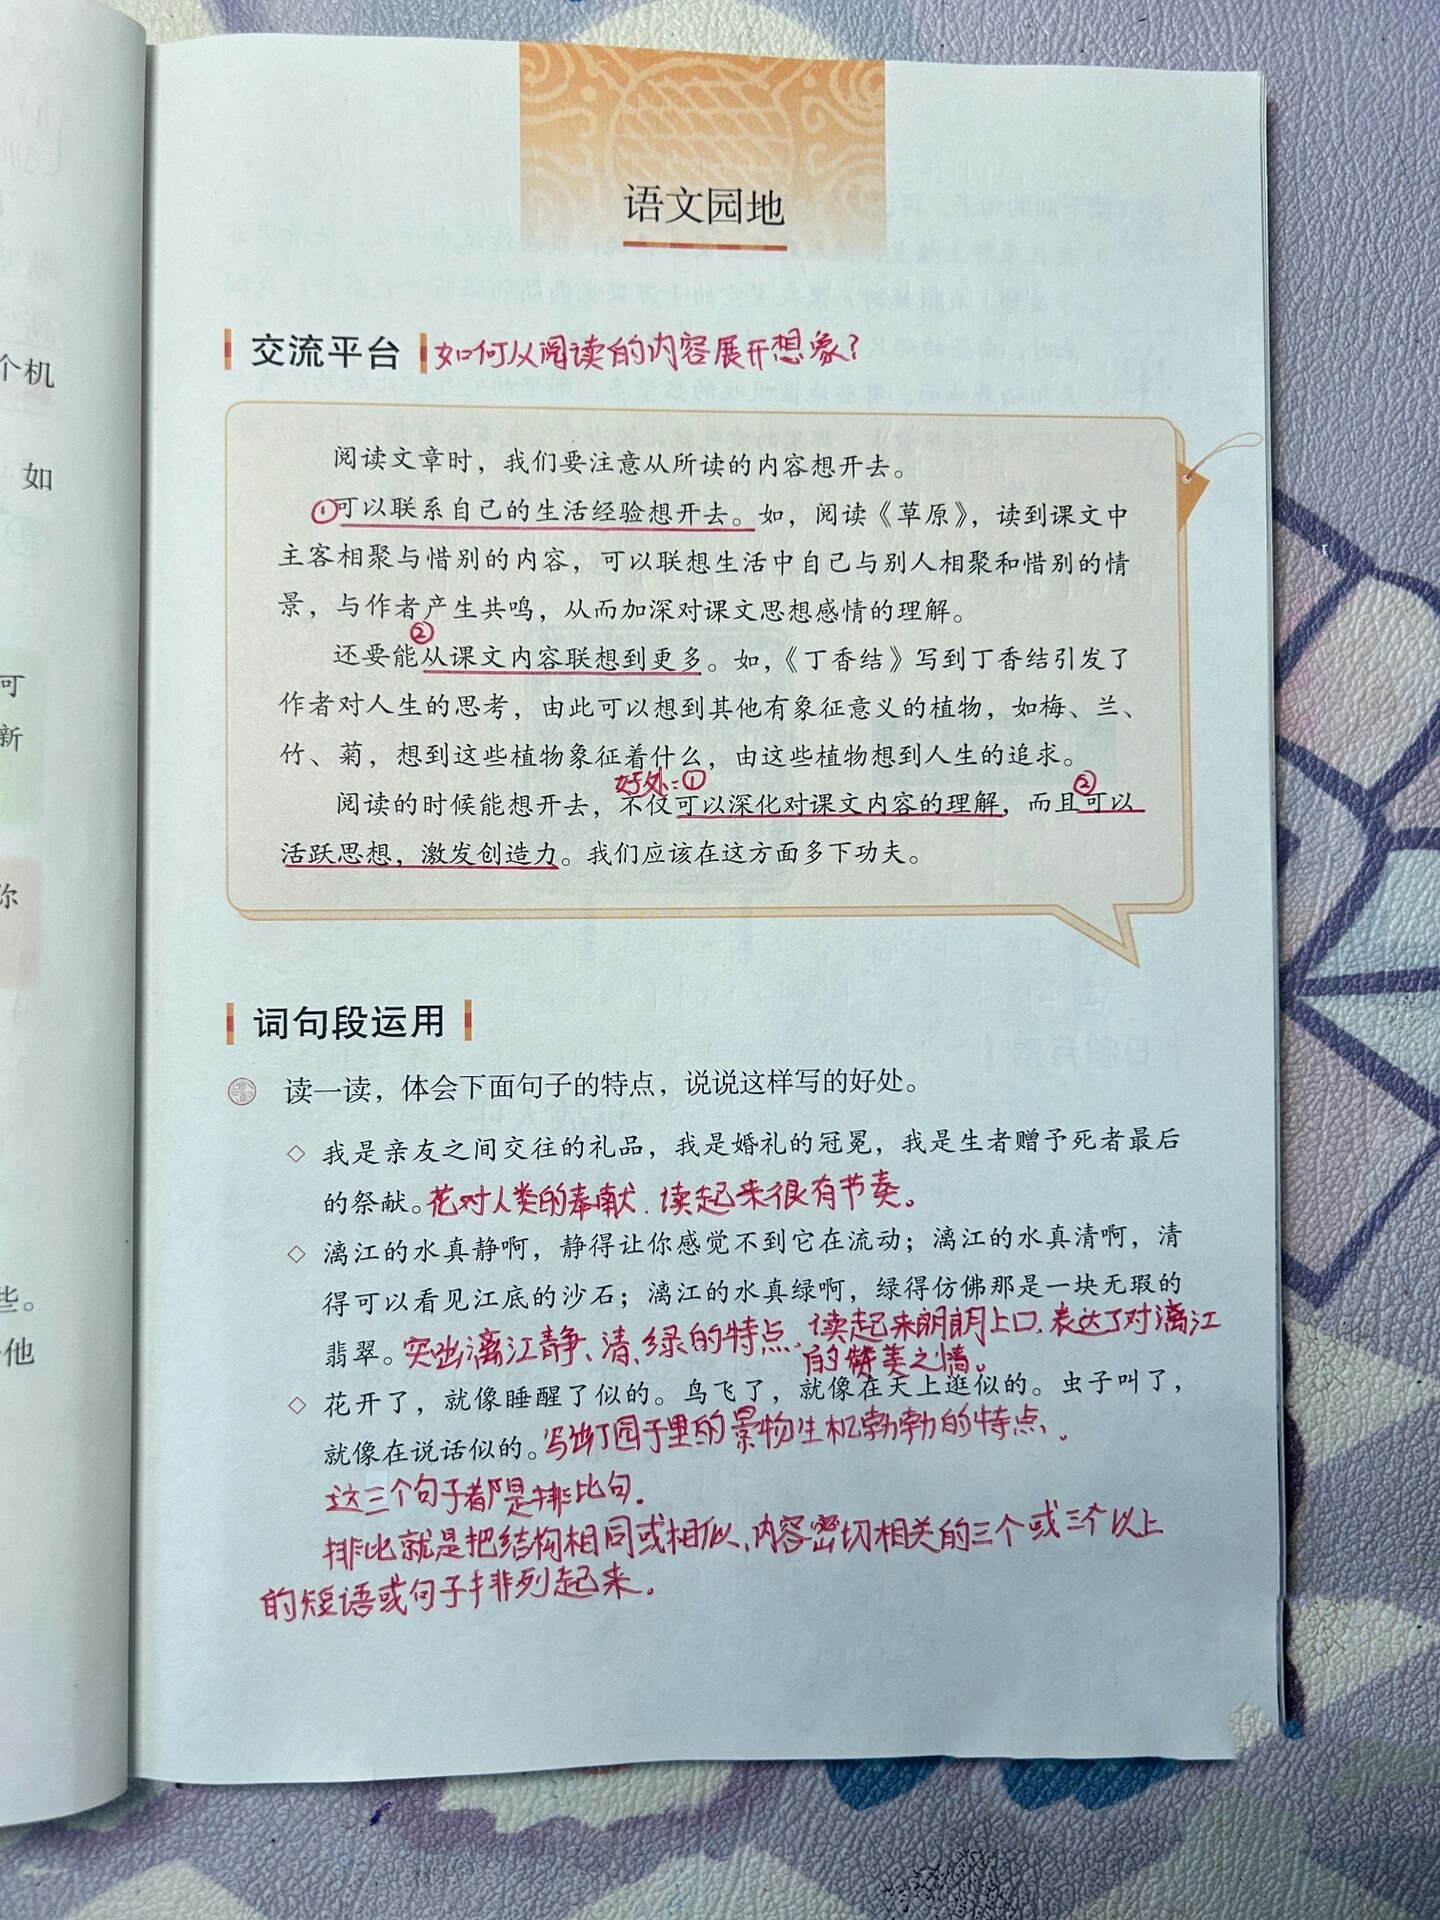 个机
如
可
新
你
些。
他
语文园地
交流平台 如何从阅读的内容展开想象？
阅读文章时，我们要注意从所读的内容想开去。
①可以联系自己的生活经验想开去。如，阅读《草原》，读到课文中
主客相聚与惜别的内容，可以联想生活中自己与别人相聚和惜别的情
景，与作者产生共鸣，从而加深对课文思想感情的理解。
②
还要能从课文内容联想到更多。如，《丁香结》写到丁香结引发了
作者对人生的思考，由此可以想到其他有象征意义的植物，如梅、兰、
竹、菊，想到这些植物象征着什么，由这些植物想到人生的追求。
好处：① ②
阅读的时候能想开去，不仅可以深化对课文内容的理解，而且可以
活跃思想，激发创造力。我们应该在这方面多下功夫。
词句段运用
读一读，体会下面句子的特点，说说这样写的好处。
◇ 我是亲友之间交往的礼品，我是婚礼的冠冕，我是生者赠予死者最后
的祭献。花对人类的奉献、读起来很有节奏。
◇ 漓江的水真静啊，静得让你感觉不到它在流动；漓江的水真清啊，清
得可以看见江底的沙石；漓江的水真绿啊，绿得仿佛那是一块无瑕的
翡翠。突出漓江静、清、绿的特点、读起来朗朗上口、表达了对漓江
的赞美之情。
◇ 花开了，就像睡醒了似的。鸟飞了，就像在天上逛似的。虫子叫了，
就像在说话似的。写出了园子里的景物生机勃勃的特点、
这三个句子都是排比句.
排比就是把结构相同或相似、内容密切相关的三个或三个以上
的短语或句子排列起来.